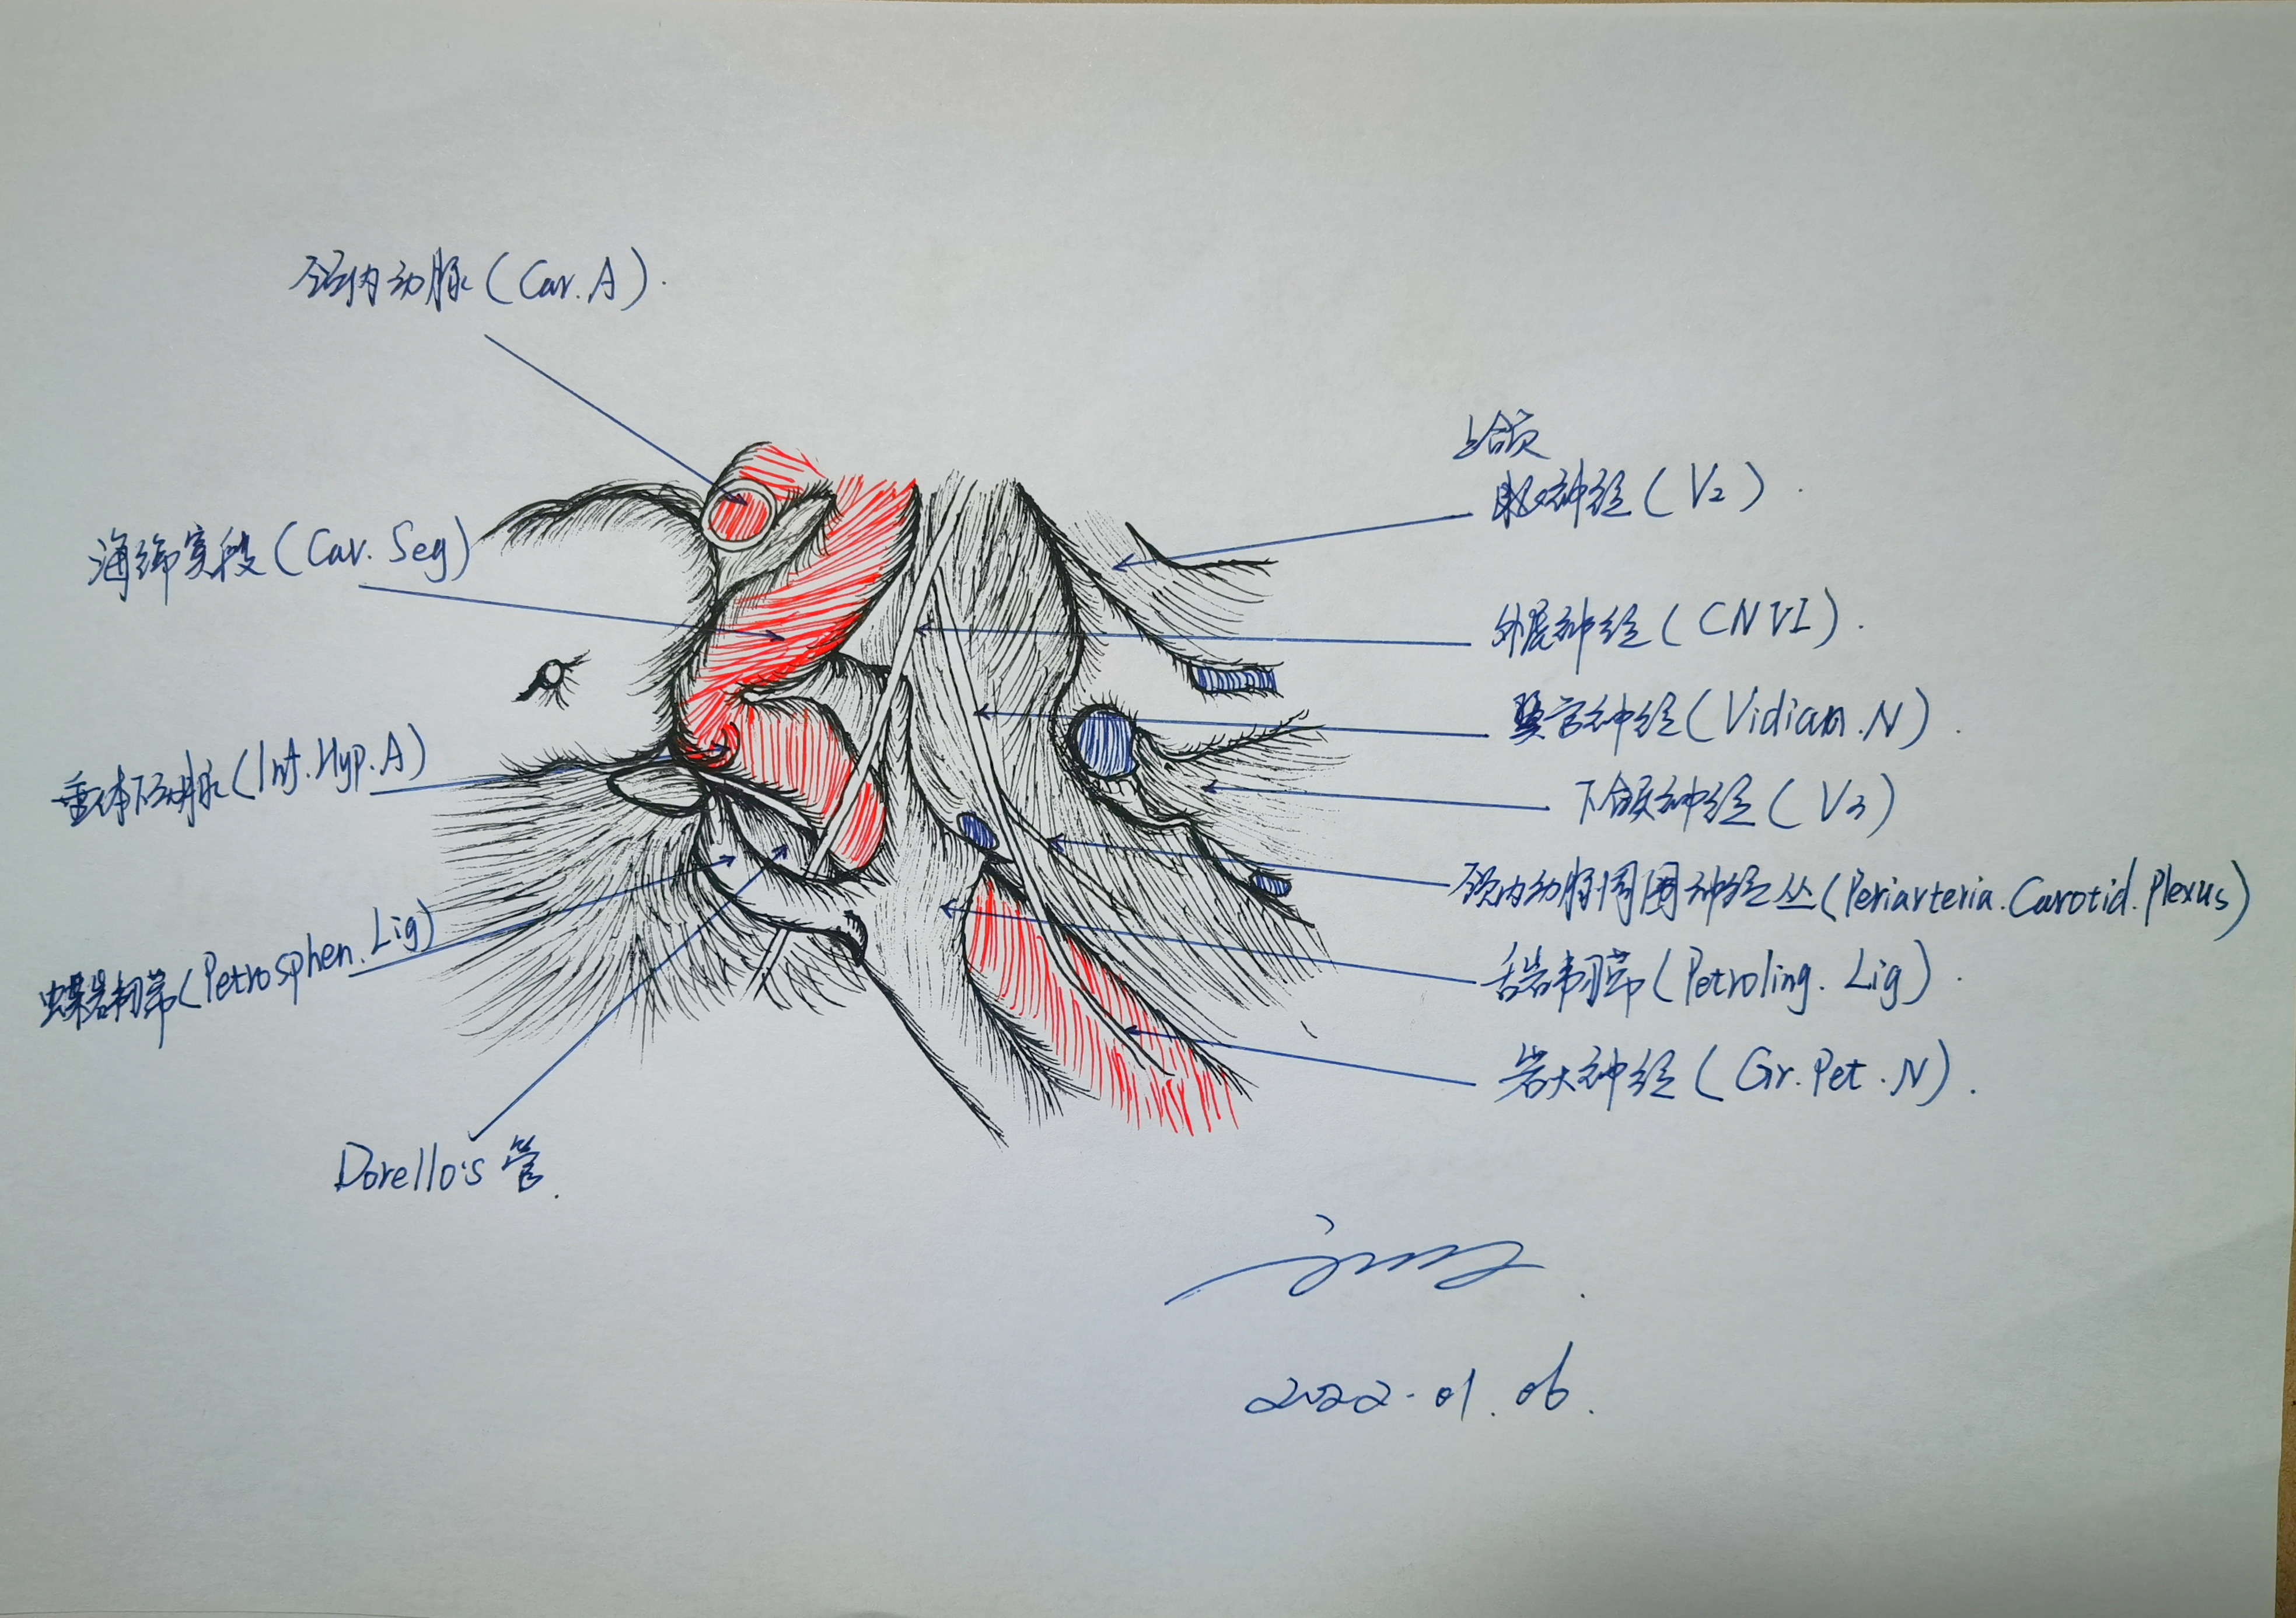 颈内动脉(Car.A).
海绵窦段(Cav.Seg)
垂体下动脉(Inf.Hyp.A)
蝶岩韧带(Petrosphen.Lig)
Dorello's 管.
上颌
神经(V2).
外展神经(CNVI).
翼管神经(Vidian.N).
下颌神经(V3)
颈内动脉周围神经丛(Periarteria.Carotid.Plexus)
舌岩韧带(Petroling.Lig).
岩大神经(Gr.Pet.N).
2022.01.06.